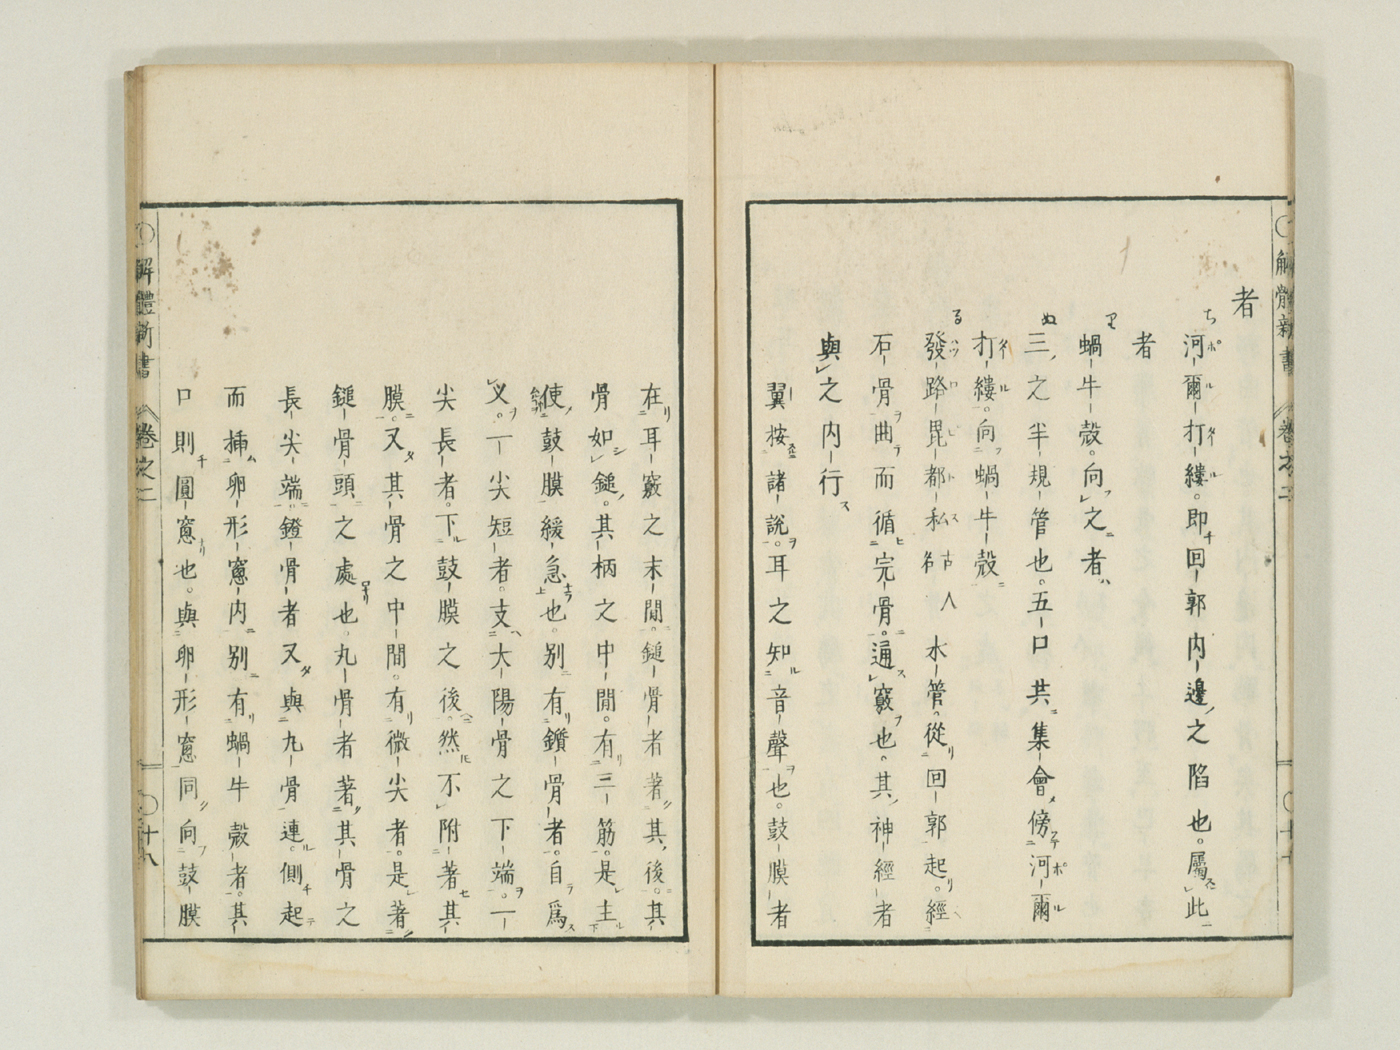 者
ち 河爾打縷。即回郭内邊之陷也。屬此
者
り 蝸牛殼。向之者
ぬ 三之半規管也。五口共集會傍河爾
打縷。向蝸牛殼
る 發路毘都私 人名 水管。從回郭起。經
石骨曲而循完骨。通竅也。其神經者
與之内行
翼按諸説。耳之知音聲也。鼓膜者
在耳竅之末間。鎚骨者著其後。其
骨如鎚。其柄之中間。有三筋。是主
使鼓膜緩急也。別有鑽骨者。自爲
叉。一尖短者。支大陽骨之下端。一
尖長者。下鼓膜之後。然不附著其
膜。又其骨之中間。有微尖者。是著
鎚骨頭之處也。丸骨者著其骨之
長尖端。鐙骨者又與丸骨連。側起
而挿卵形窻内。別有蝸牛殼者。其
口則圓窻也。與卵形窻同向鼓膜
解體新書 卷之二
十八